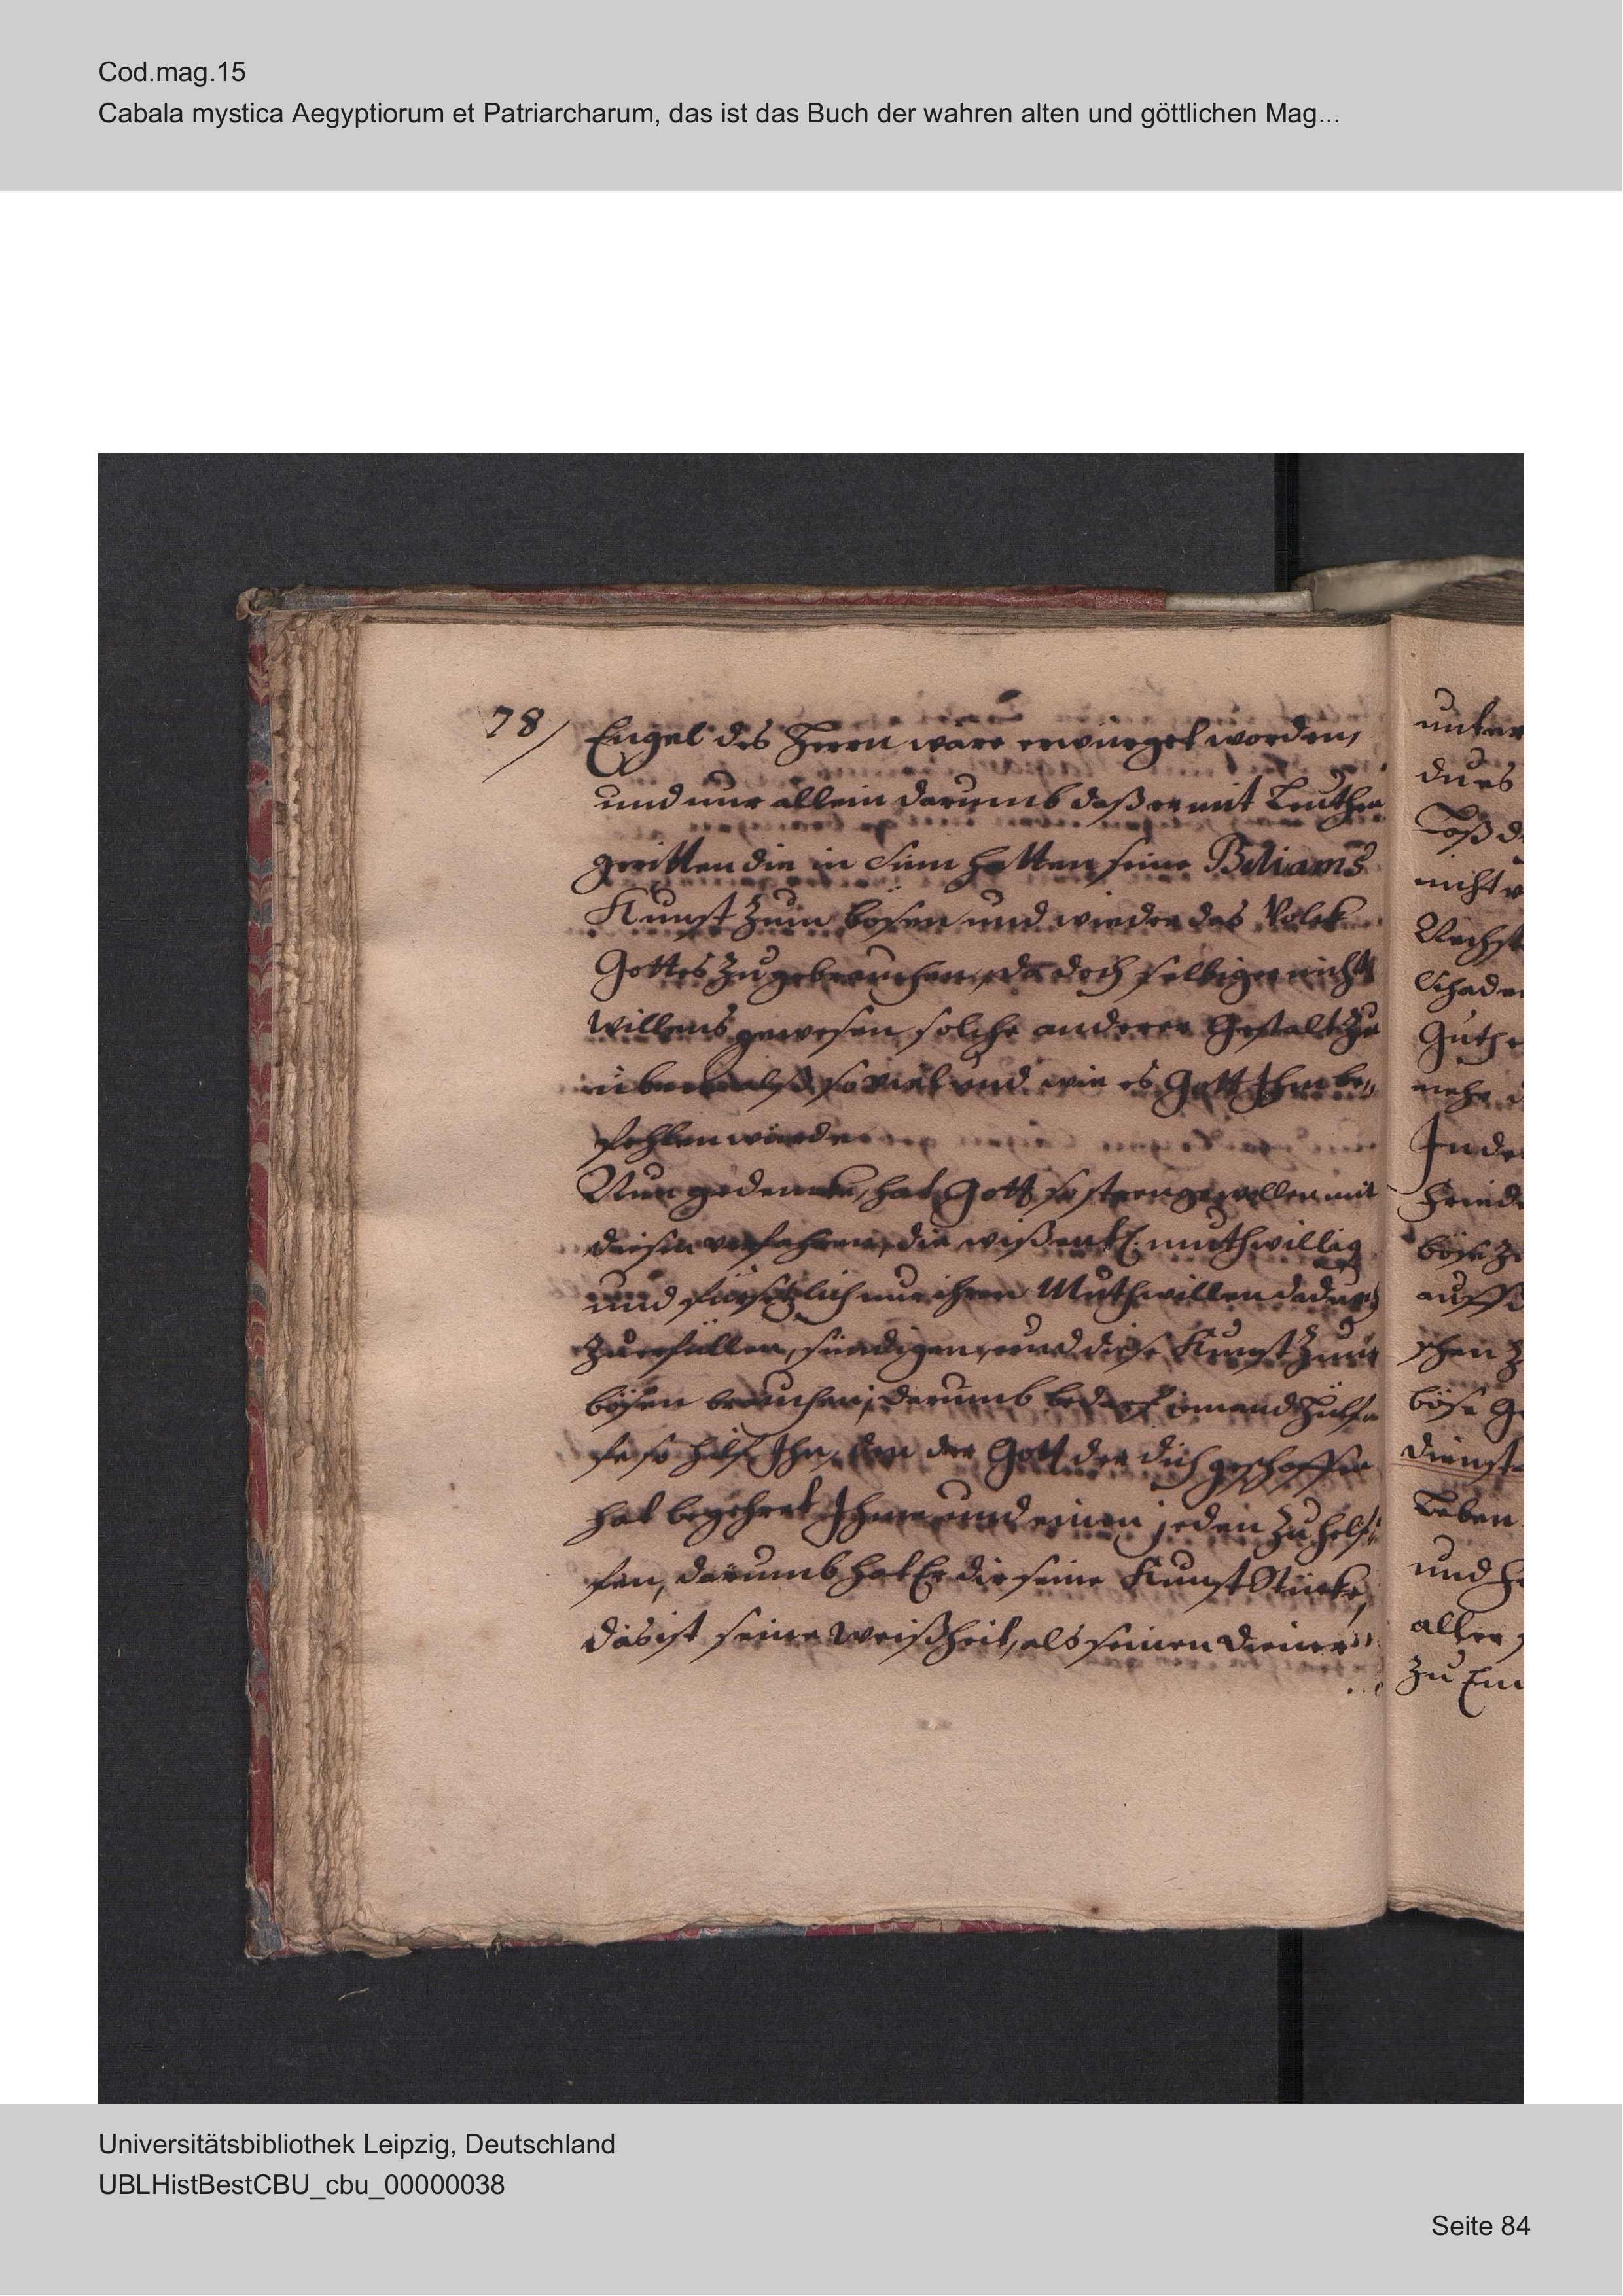 Cod.mag.15
Cabala mystica Aegyptiorum et Patriarcharum, das ist das Buch der wahren alten und göttlichen Mag...
78/
Engel des Herrn wäre erwürget worden,
und nur allein darumb daß er mit Leuthen
geritten die in Sinn hatten seine Biliams
Kunst zum bösen und wieder das Volck
Gottes zu gebrauchen, da doch selbiger nicht
willens gewesen solche anderer Gestalt zu
so viel und wie es Gott Ihm be„
fehlen würde
Nun gedencke, hat Gott so strenge wollen mit
diesen verfahren, die wißentl. muthwillig
und fürsetzlich nur ihren Muthwillen dadurch
zu erfüllen, sündigen, und diese Kunst zum
bösen brauchen; darumb bedarf iemand Hülf„
fe so hilf Ihn, den der Gott der dich geschaffen
hat begehret Ihme und einen jeden zu helf„
fen, darumb hat Er dir seine Kunst Stücke,
das ist seine Weißheit, als seinen Diener
unter
du es
nicht
Nechst
Schaden
Guth
mehr
In de
Friede
böse z
auff
schen z
böse G
dienst
Leben
und
aller
zu
Universitätsbibliothek Leipzig, Deutschland
UBLHistBestCBU_cbu_00000038
Seite 84